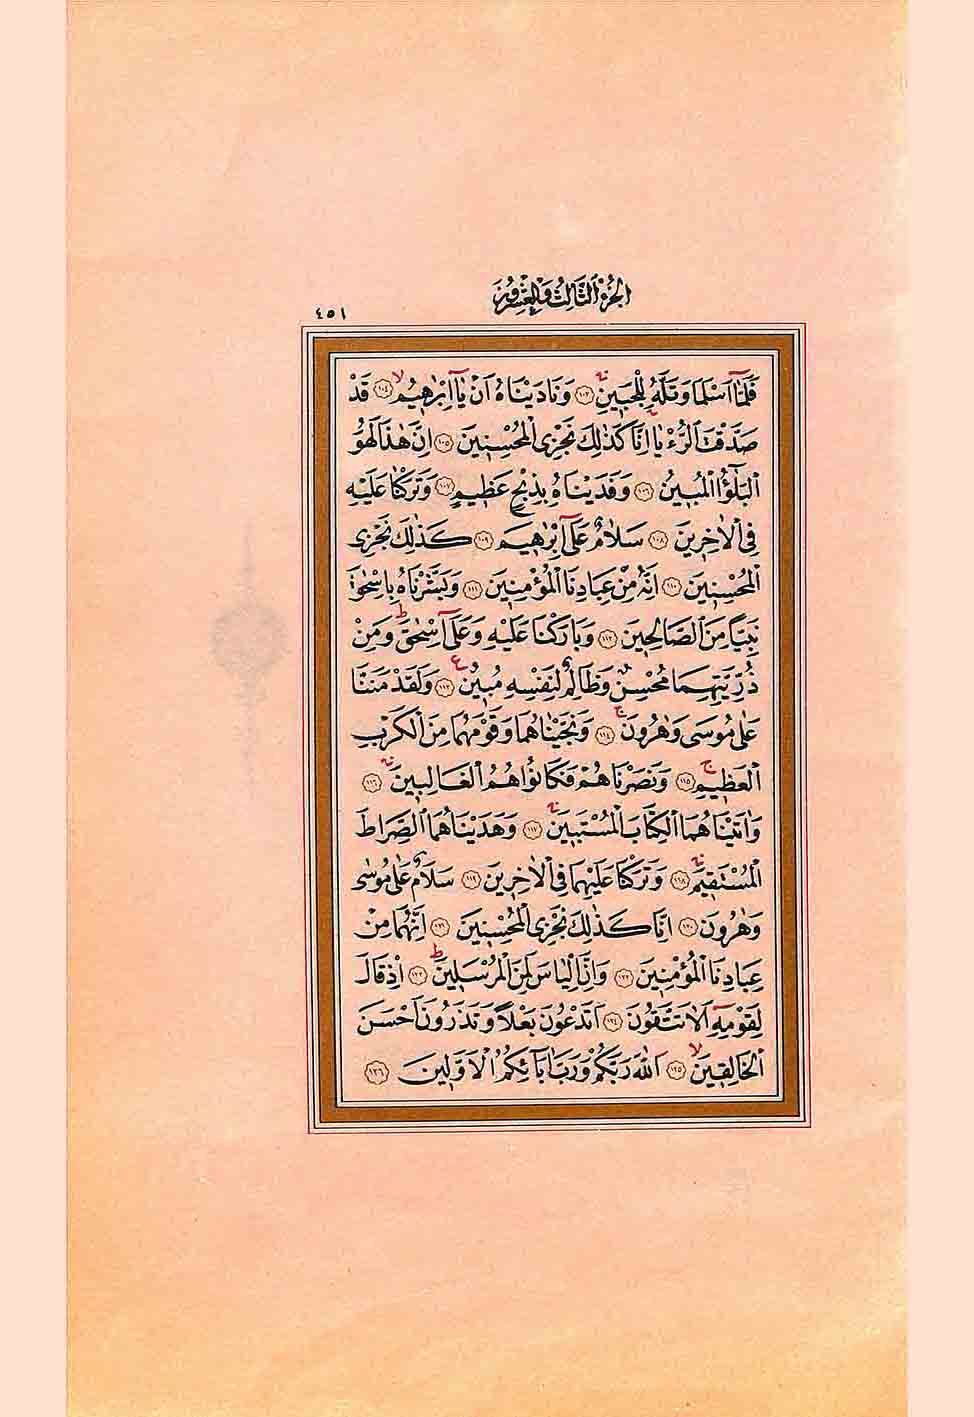 الجزء الثالث والعشرون
٤٥١
فَلَمَّٓا اَسْلَمَا وَتَلَّهُ لِلْجَبينِۚ ﴿١٠٣﴾ وَنَادَيْنَاهُ اَنْ يَٓا اِبْرٰهيمُۙ ﴿١٠٤﴾ قَدْ
صَدَّقْتَ الرُّءْيَاۚ اِنَّا كَذٰلِكَ نَجْزِي الْمُحْسِنينَ ﴿١٠٥﴾ اِنَّ هٰذَا لَهُوَ
الْبَلٰٓؤُا الْمُبينُ ﴿١٠٦﴾ وَفَدَيْنَاهُ بِذِبْحٍ عَظيمٍ ﴿١٠٧﴾ وَتَرَكْنَا عَلَيْهِ
فِي الْاٰخِرينَ ﴿١٠٨﴾ سَلَامٌ عَلٰٓى اِبْرٰهيمَ ﴿١٠٩﴾ كَذٰلِكَ نَجْزِي
الْمُحْسِنينَ ﴿١١٠﴾ اِنَّهُ مِنْ عِبَادِنَا الْمُؤْمِنينَ ﴿١١١﴾ وَبَشَّرْنَاهُ بِاِسْحٰقَ
نَبِيًّا مِنَ الصَّالِحينَ ﴿١١٢﴾ وَبَارَكْنَا عَلَيْهِ وَعَلٰٓى اِسْحٰقَۜ وَمِنْ
ذُرِّيَّتِهِمَا مُحْسِنٌ وَظَالِمٌ لِنَفْسِه مُبينٌ ع ﴿١١٣﴾ وَلَقَدْ مَنَنَّا
عَلٰى مُوسٰى وَهٰرُونَۚ ﴿١١٤﴾ وَنَجَّيْنَاهُمَا وَقَوْمَهُمَا مِنَ الْكَرْبِ
الْعَظيمِۚ ﴿١١٥﴾ وَنَصَرْنَاهُمْ فَكَانُوا هُمُ الْغَالِبينَۚ ﴿١١٦﴾
وَاٰتَيْنَاهُمَا الْكِتَابَ الْمُسْتَبينَۚ ﴿١١٧﴾ وَهَدَيْنَاهُمَا الصِّرَاطَ
الْمُسْتَقيمَۚ ﴿١١٨﴾ وَتَرَكْنَا عَلَيْهِمَا فِي الْاٰخِرينَ ﴿١١٩﴾ سَلَامٌ عَلٰى مُوسٰى
وَهٰرُونَ ﴿١٢٠﴾ اِنَّا كَذٰلِكَ نَجْزِي الْمُحْسِنينَ ﴿١٢١﴾ اِنَّهُمَا مِنْ
عِبَادِنَا الْمُؤْمِنينَ ﴿١٢٢﴾ وَاِنَّ اِلْيَاسَ لَمِنَ الْمُرْسَلينَۜ ﴿١٢٣﴾ اِذْ قَالَ
لِقَوْمِه۪ٓ اَلَا تَتَّقُونَ ﴿١٢٤﴾ اَتَدْعُونَ بَعْلًا وَتَذَرُونَ اَحْسَنَ
الْخَالِقينَۙ ﴿١٢٥﴾ اَللّٰهَ رَبَّكُمْ وَرَبَّ اٰبَٓائِكُمُ الْاَوَّلينَ ﴿١٢٦﴾